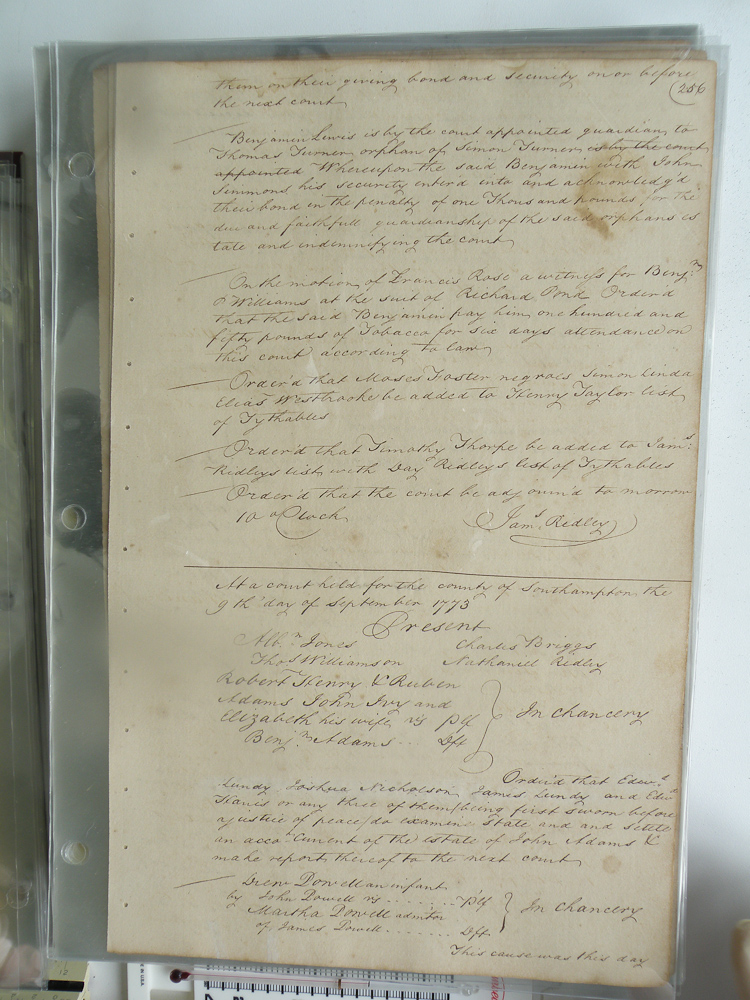 them on their giving bond and security on or before
256
the next court
Benjamin Lewis is by the court appointed guardian to
Thomas Turner orphan of Simon Turner is by the court
appointed Whereupon the said Benjamin with John
Simmons his security enter'd into and acknowledg'd
their bond in the penalty of one Thousand pounds for the
due and faithfull guardianship of the said orphans es
tate and indemnifying the court
On the motion of Francis Rose a witness for Benjn
Williams at the suit of Richard Pond Order'd
that the said Benjamin pay him one hundred and
fifty pounds of Tobacco for six days attendance on
this court according to law
Order'd that Moses Foster negroes Simon Linda
Elias Westbrooke be added to Henry Taylor list
of Tythables
Order'd that Timothy Thorpe be added to Jams
Ridley's list with Day Ridley's list of Tythables
Order'd that the court be adjourn'd to morrow
10 o Clock
Jams Ridley
At a court held for the county of Southampton the
9th day of September 1773
Present
Albn Jones Charles Briggs
Thos Williamson Nathaniel Ridley
Robert Henry & Ruben
Adams John Ivy and
Elizabeth his wife vs Plf
In chancery
Benjn Adams .. Dft
Order'd that Edwd
Lundy Joshua Nicholson James Lundy and Edwd
or any three of them being first sworn before
a justice of peace do examin State and and settle
an accot Current of the estate of John Adams &
make report thereof to the next court
Drew Dowell an infant
by John Dowell vs ....... Plf
In chancery
Martha Dowell admtor
of James Dowell ....... Dft
This cause was this day